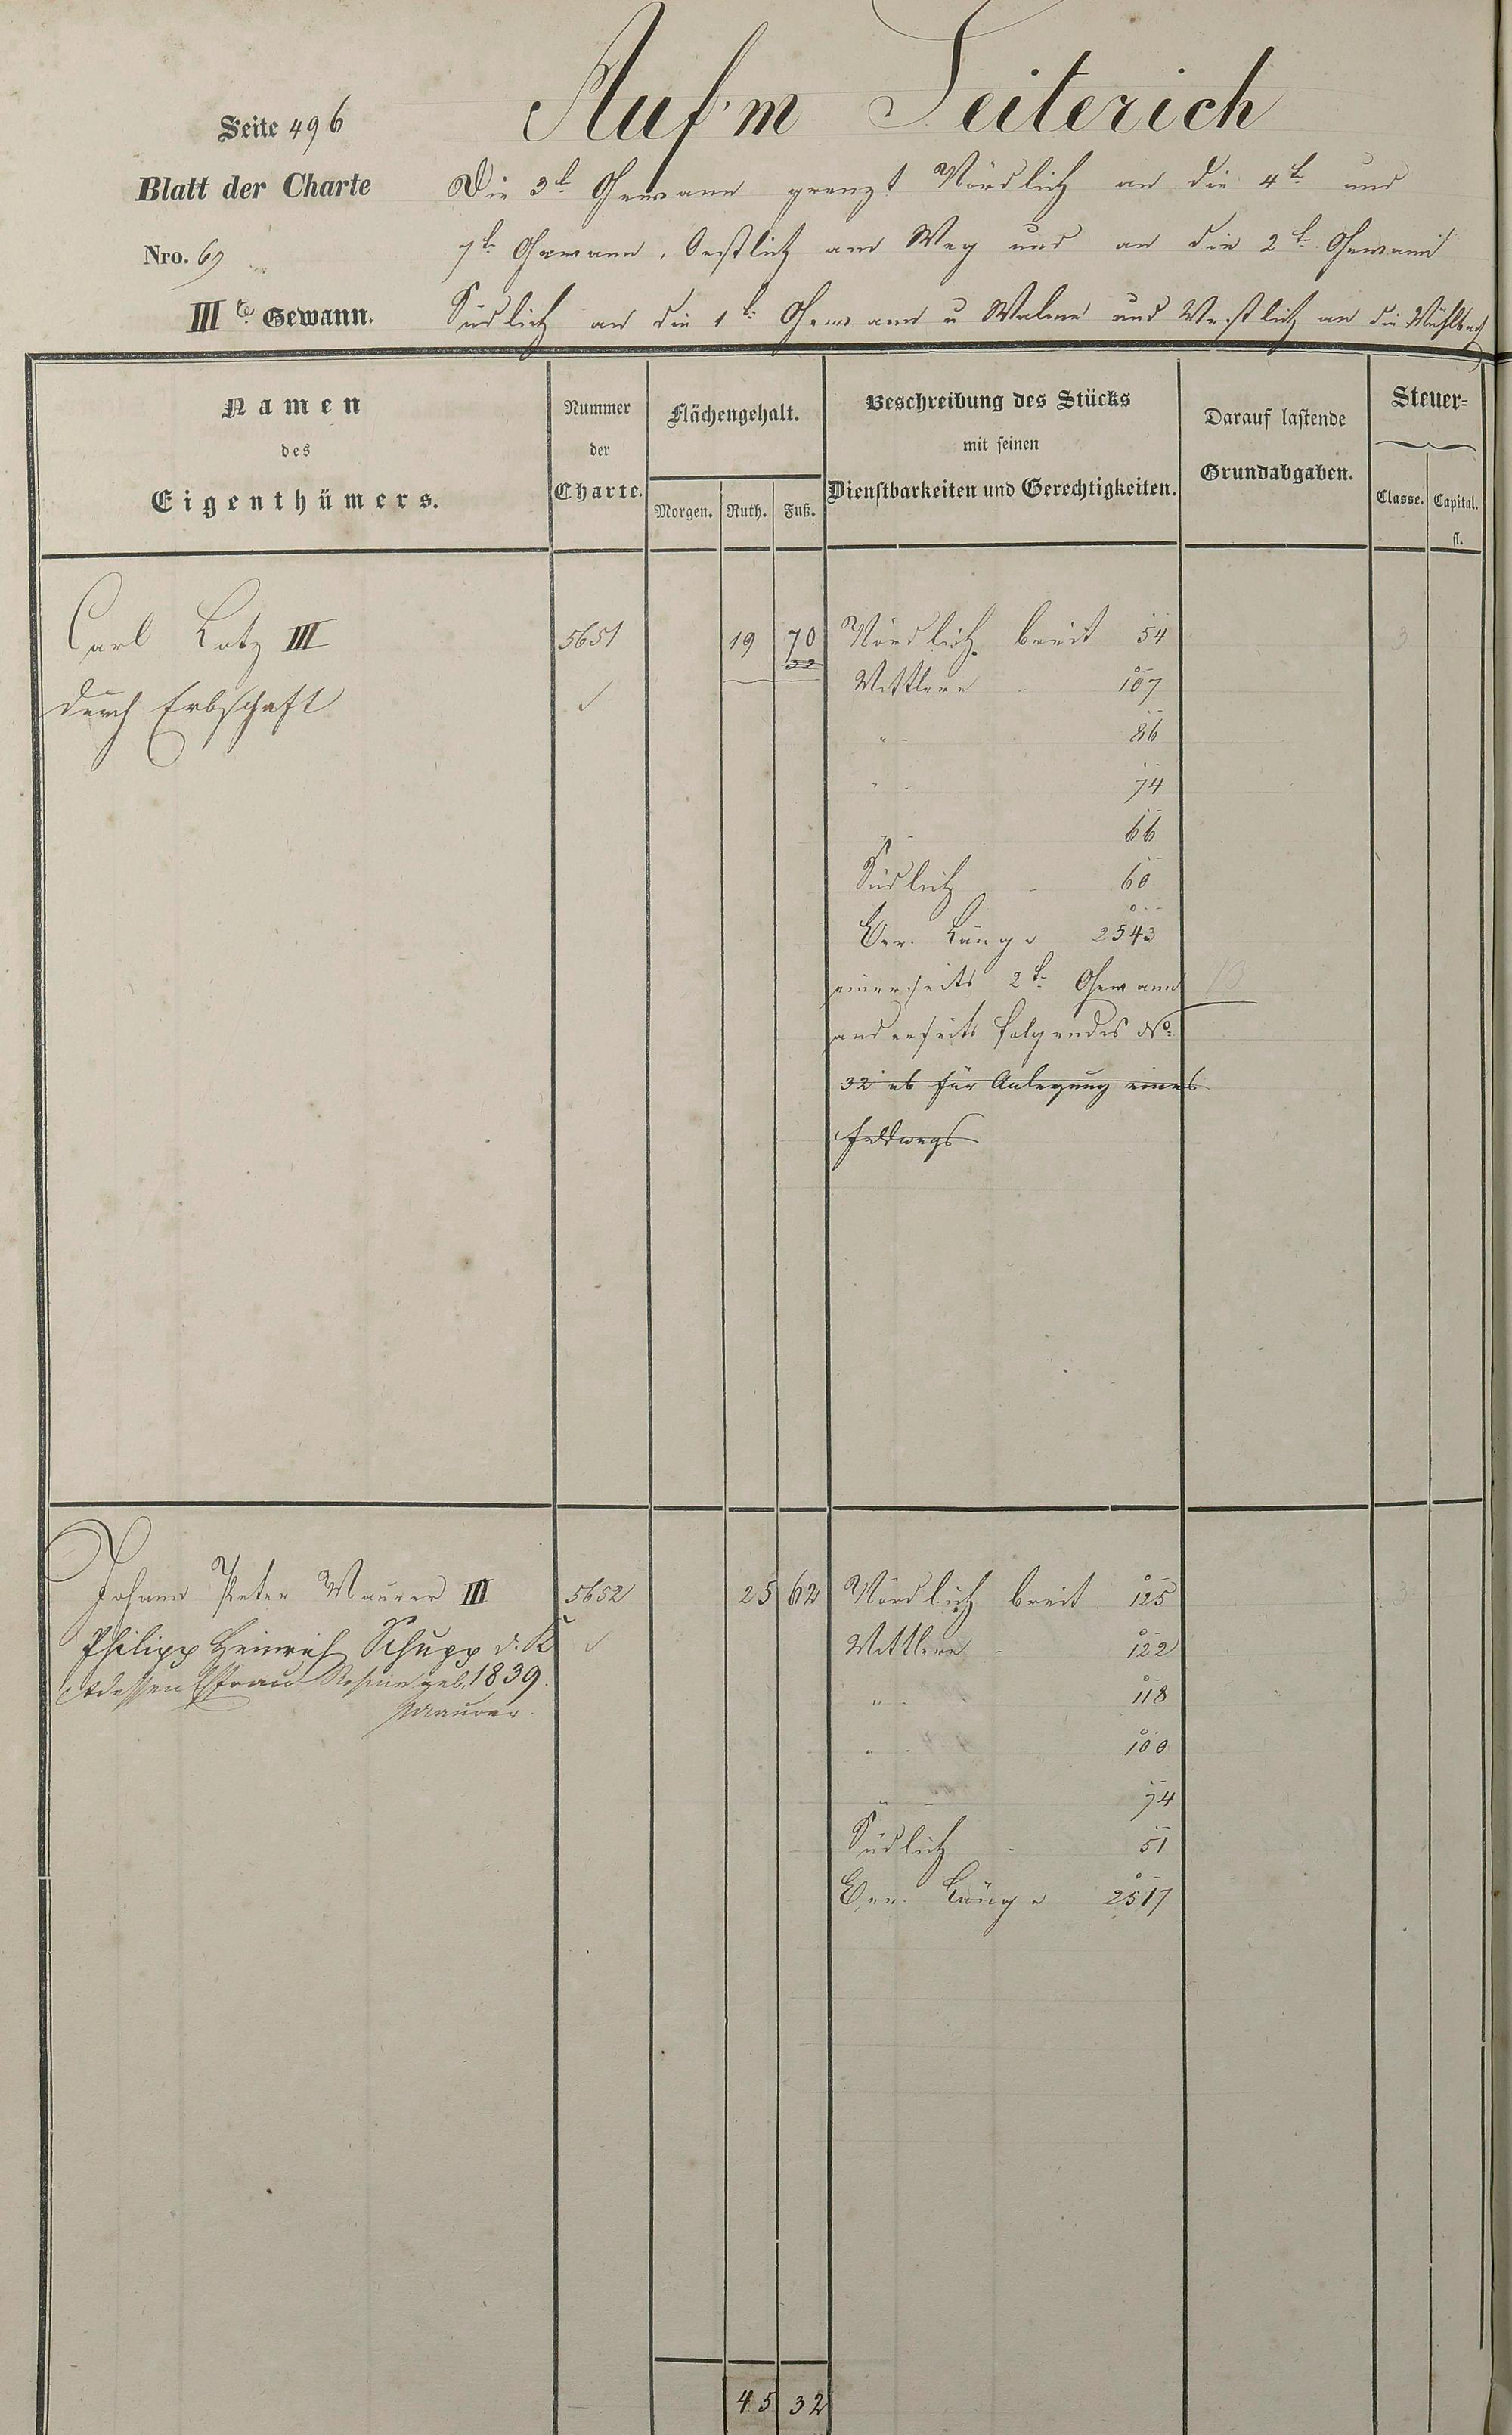 Seite 496
Auf'm Seiterich
Blatt der Charte
Nro. 69
IIIte Gewann.
Die 3te Gewann grenzt Nördlich an die 4te und
7te Gewann, Oestlich am Weg und an die 2te Gewann
Südlich an die 1te Gewann u Walme und Westlich an die Mühlbach
Namen
des
Eigenthümers.
Nummer
der
Charte.
Flächengehalt.
Morgen. Ruth. Fuß.
Beschreibung des Stücks
mit seinen
Dienstbarkeiten und Gerechtigkeiten.
Darauf lastende
Grundabgaben.
Steuer-
Classe. Capital.
fl.
Carl Lotz III 5651 19 70 Nördlich breit 54 3
32
durch Erbschaft
Mittlere 107
" 86
" 74
" 66
Südlich - 60
Ver. Länge 2543
einerseits 2te Gewann
anderseits folgendes No
32 ab für Anlegung eines
Feldwegs
Johann Peter Maurer III 5652 25 62 Nördlich breit 125 3
Philipp Heinrich Schupp d. K
u dessen Efrau geb. 1839.
Maurer.
Mittlere - 122
" 118
" 100
" 74
Südlich - 51
Ver. Länge 2517
45 32